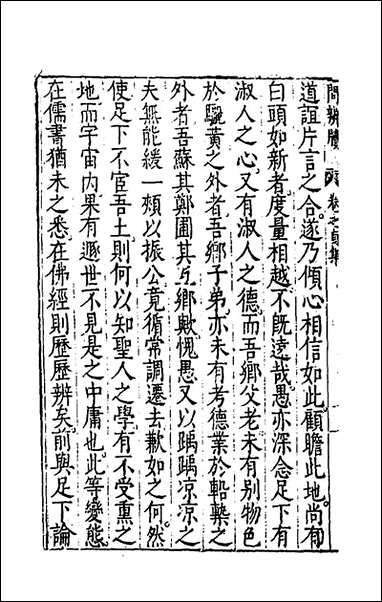 問辨牘　卷之貞集
道誼片言之合遂乃傾心相信如此顧瞻此地尚有
白頭如新者度量相越不既遠哉愚亦深念足下有
淑人之心又有淑人之德而吾鄉父老未有别物色
於驪黃之外者吾鄉子弟亦未有考德業於韜槧之
外者吾蘇其鄭圃其互鄉歟愧愚又以踽踽凉凉之
夫無能緩一頰以振公竟循常調遷去歉如之何然
使足下不宦吾土則何以知聖人之學有不受熏之
地而宇宙内果有遯世不見是之中庸也此等變態
在儒書猶未之悉在佛經則歷歷辨矣前與足下論